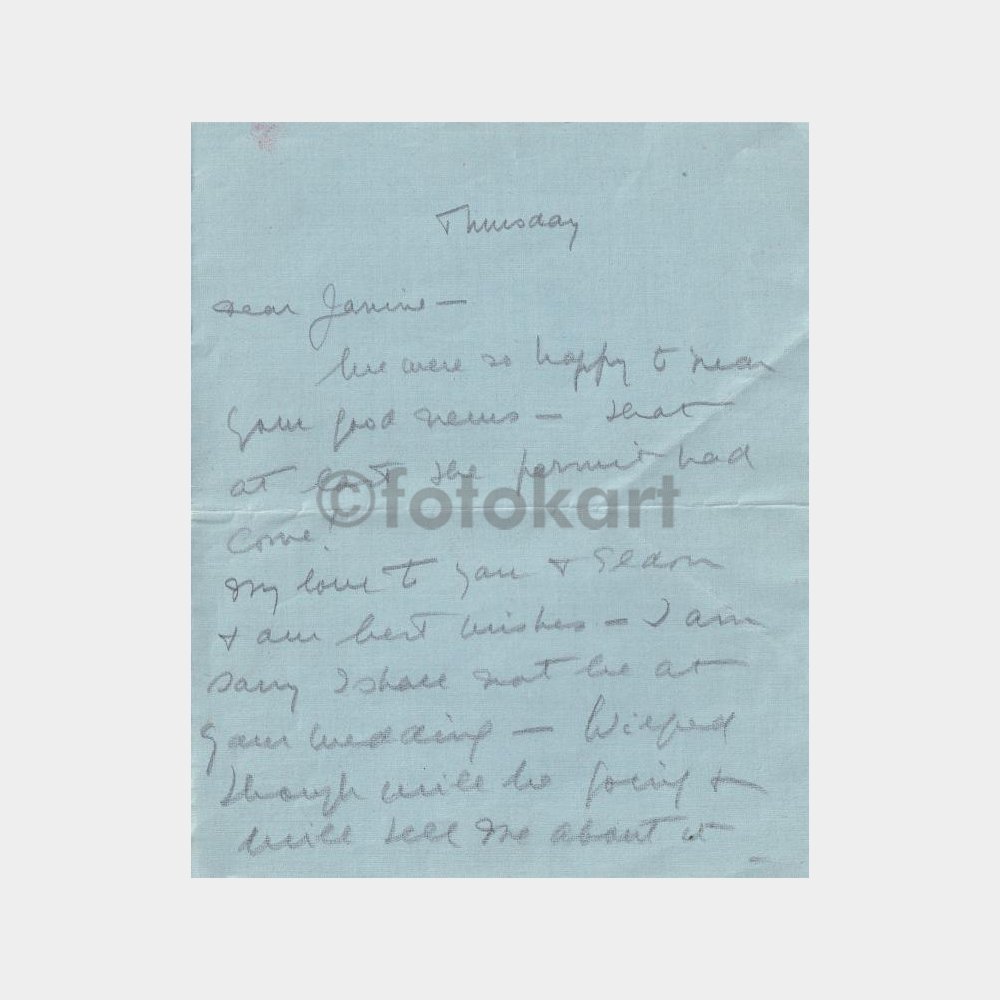 Thursday
Dear Janine —
We were so happy to hear
your good news — that
at last the permit had
come!
©fotokart
My love to you &
& our best wishes — I am
sorry I shall not be at
your wedding — Wilfred
though will be going &
will tell me about it